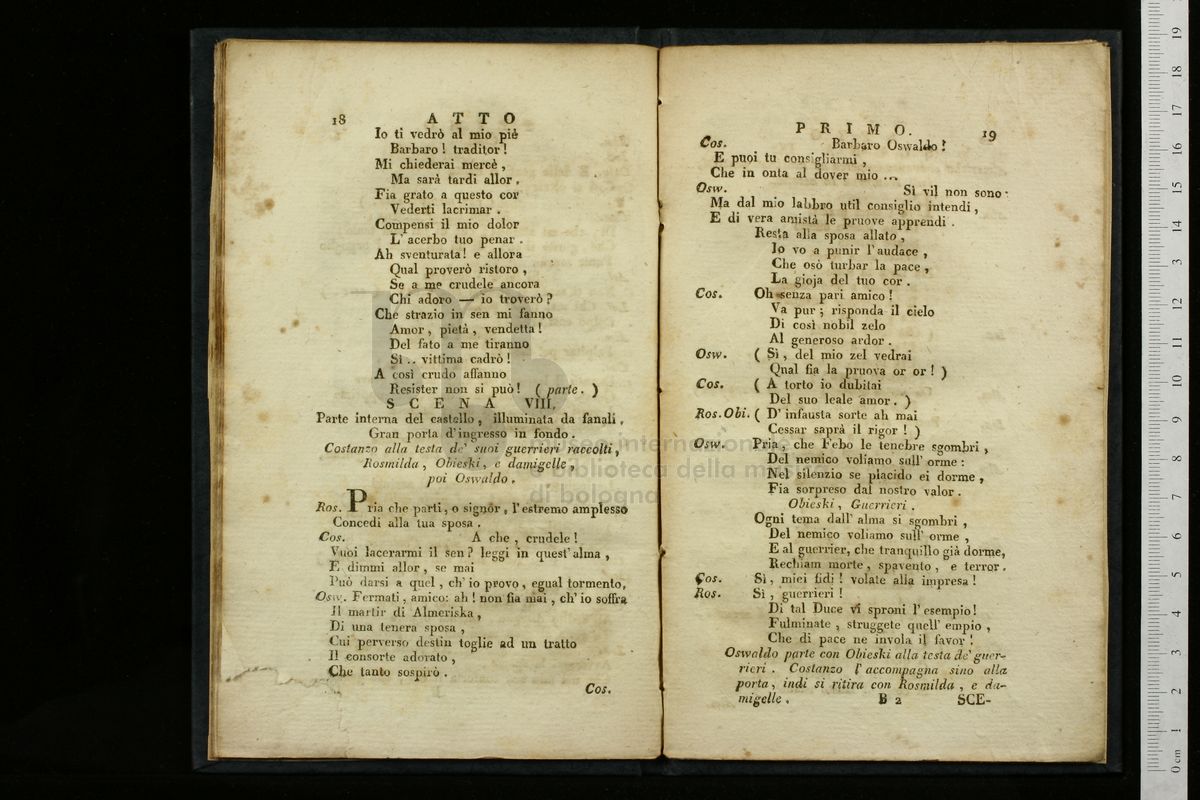 18 ATTO
Io ti vedrò al mio piè
Barbaro ! traditor !
Mi chiederai mercè ,
Ma sarà tardi allor .
Fia grato a questo cor
Vederti lacrimar .
Compensi il mio dolor
L' acerbo tuo penar .
Ah sventurata! e allora
Qual proverò ristoro ,
Se a me crudele ancora
Chi adoro — io troverò ?
Che strazio in sen mi fanno
Amor , pietà , vendetta !
Del fato a me tiranno
Sì .. vittima cadrò !
A così crudo affanno
Resister non si può ! ( parte . )
SCENA VIII.
Parte interna del castello , illuminata da fanali .
Gran porta d'ingresso in fondo .
Costanzo alla testa de' suoi guerrieri raccolti ,
Rosmilda , Obieski , e damigelle ,
poi Oswaldo .
Ros. Pria che parti , o signor , l'estremo amplesso
Concedi alla tua sposa .
Cos. A che , crudele !
Vuoi lacerarmi il sen ? leggi in quest' alma ,
E dimmi allor , se mai
Può darsi a quel , ch' io provo , egual tormento,
Osw. Fermati , amico: ah ! non fia mai , ch' io soffra
Il martir di Almeriska ,
Di una tenera sposa ,
Cui perverso destin toglie ad un tratto
Il consorte adorato ,
Che tanto sospirò .
Cos.
PRIMO. 19
Cos. Barbaro Oswaldo !
E puoi tu consigliarmi ,
Che in onta al dover mio ...
Osw. Sì vil non sono .
Ma dal mio labbro util consiglio intendi ,
E di vera amistà le pruove apprendi .
Resta alla sposa allato ,
Io vo a punir l'audace ,
Che osò turbar la pace ,
La gioja del tuo cor .
Cos. Oh senza pari amico !
Va pur ; risponda il cielo
Di così nobil zelo
Al generoso ardor .
Osw. ( Sì , del mio zel vedrai
Qual fia la pruova or or ! )
Cos. ( A torto io dubitai
Del suo leale amor . )
Ros.Obi. ( D' infausta sorte ah mai
Cessar saprà il rigor ! )
Osw. Pria , che Febo le tenebre sgombri ,
Del nemico voliamo sull' orme :
Nel silenzio se placido ei dorme ,
Fia sorpreso dal nostro valor .
Obieski , Guerrieri .
Ogni tema dall' alma si sgombri ,
Del nemico voliamo sull' orme ,
E al guerrier, che tranquillo già dorme,
Rechiam morte , spavento , e terror .
Cos. Sì , miei fidi ! volate alla impresa !
Ros. Sì , guerrieri !
Di tal Duce vi sproni l'esempio!
Fulminate , struggete quell' empio ,
Che di pace ne invola il favor !
Oswaldo parte con Obieski alla testa de' guer-
rieri . Costanzo l'accompagna sino alla
porta , indi si ritira con Rosmilda , e da-
migelle .
B 2 SCE-
museo internazionale
e biblioteca della musica
di bologna
0 cm 1 2 3 4 5 6 7 8 9 10 11 12 13 14 15 16 17 18 19